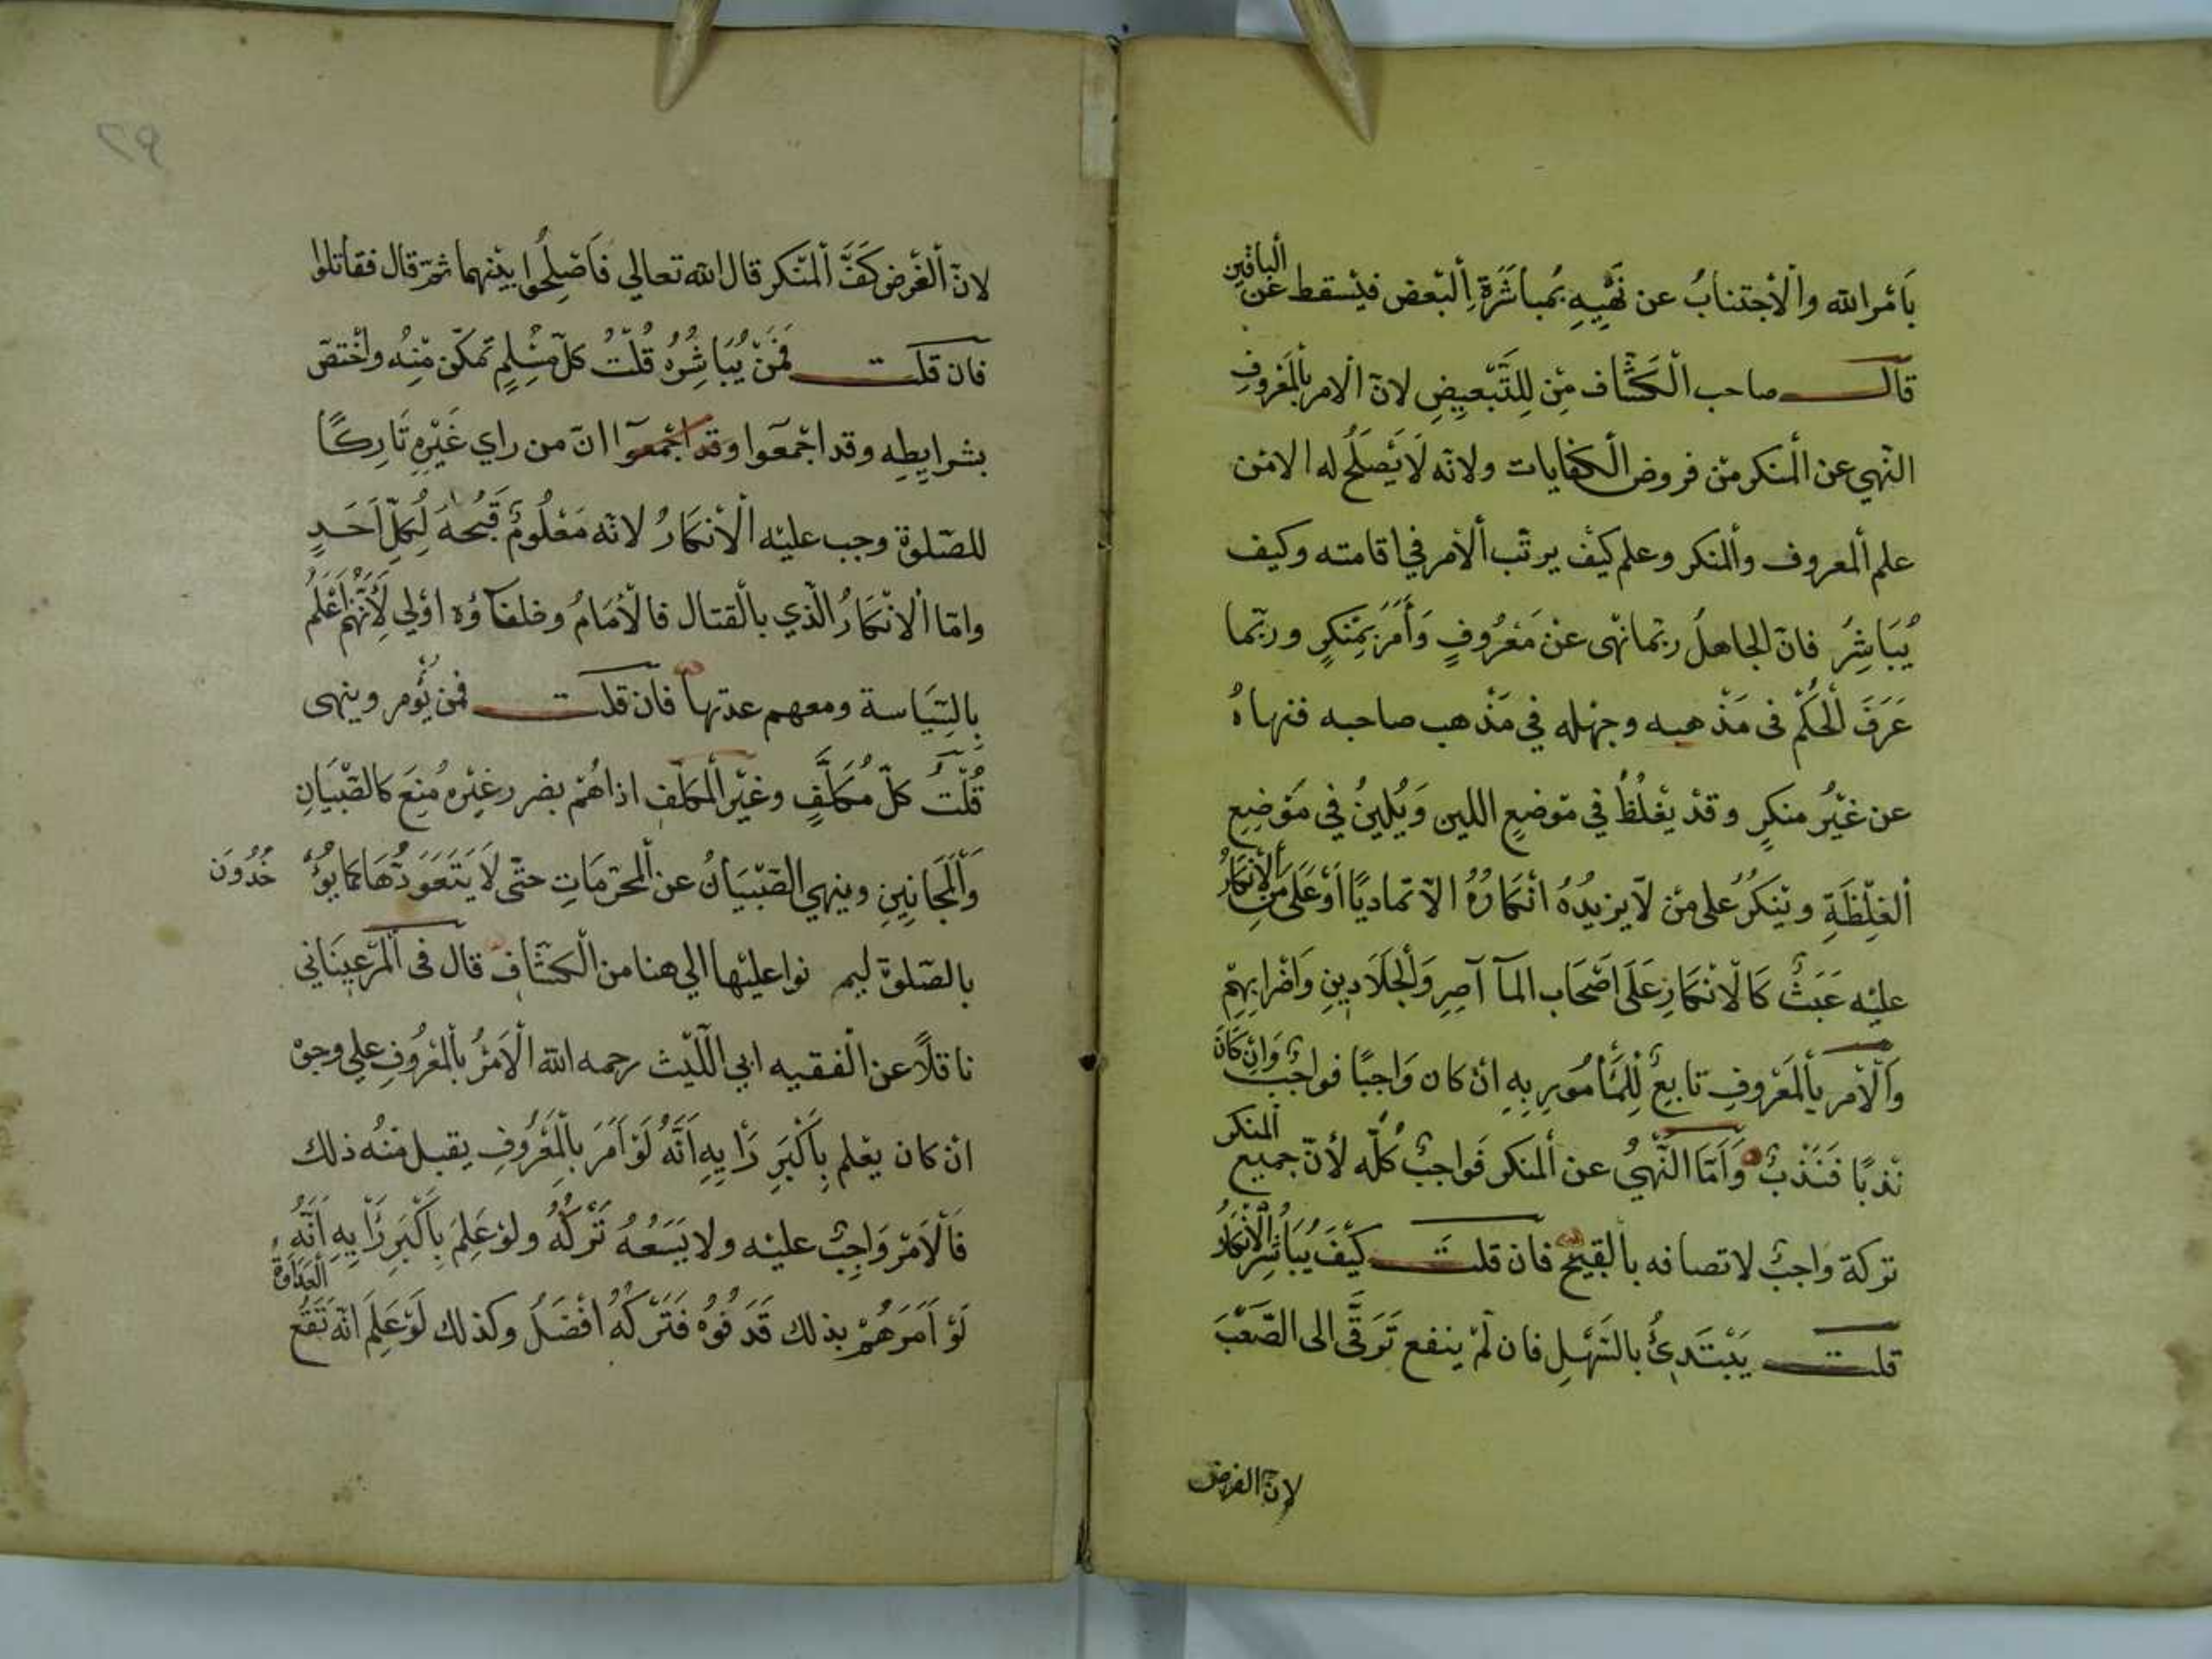 بَامْرالله والْاجتنابُ عن نَهْيِهِ بمُباشَرَةِ اَلبَعض فيَسقط عَن اَلباقين
قاَلــــ صاحب الْكَشّاف مِن لِلتَّبْعِيضِ لانّ الامر بالمَغروفِ
النّهي عن الْمنكر مِن فروض الْكفايات ولانّه لَا يَصلَحُ له الامْن
علم اَلمعروف واَلمنكر وعلم كيْف يرتّب اَلاَمر في اقامته وكيف
يُبَاشِرُ فانّ الجاهلُ ربّما نهى عنْ مَعْرُوفٍ وَاَمَرَ بمُنكرٍ وربّما
عَرَفَ اْلحُكْم فى مَذْهبه وجهْله في مَذْهب صاحبه فنهاهُ
عن غيْرُ منكرٍ وقدْ يغْلُظُ في مَوْضعِ اللين وَيُلينُ في مَوْضِعِ
اَلغِلْظَةِ ويُنكرُ على مَن لَا يزيدُهُ انْكارُهُ الاّ تماديًا اَوْ عَلَى مَن اَلاِنكارُ
عليْه عَبَثٌ كَالْانْكارِ عَلَى اَصْحَاب المآ آصِرِ وَالْجَلَادِينِ وَاضرابِهِمْ
وَالْاَمر باْلمَعْروفِ تابِعٌ لِلْمَأمُورِ بِهِ انْ كان وَاجبًا فواجبٌ وَاِن كَانَ
نَدْبًا فَنَدْبٌ وَاَمَّا النَّهْيُ عن اَلمنكر فَواجبٌ كُلّه لأنّ جميع المنكر
تركة واجبٌ لاتصافه بالقبيْح فان قلتَــــ كيْفَ يُبَاشِرُ اْلاِنْكارُ
قلتــــ يَبْتَدِئُ بالسّهْلِ فان لَمْ ينفع تَرَقَّى الى الصّعْبَ
لانّ الفرض
لانّ اَلغَرْض كَفَّ اَلمُنكر قال الله تعالي فَاَصْلِحُوا بيْنهما ثمّ قال فقاتلوا
فان قلتــــ فَمَنْ يُبَاشِرُهُ قُلْتُ كلّ مُسْلِمٍ تمكّن مِنْه واْختصّ
بشرايطِه وقد اجْمعَوا وقد اجْمعوَا انّ من راي غَيْرِه تَارِكًا
للصّلوة وجب عليْه الْاَنكارُ لانّه مَعْلُومٌ قُبحُهُ لِكلّ اَحَدٍ
وامّا اْلانْكارُ الّذي بالْقتال فالْاِمامُ وخلفآؤه اوْلي لِاَنّهُمْ اَعْلَمُ
بالسِّيَاسة ومعهم عدتها فان قلتــــ فمَن يُؤْمر وينهى
قُلْتُ كلّ مُكلَّفٍ وغيْر اَلمكلّف اذا هُمْ بضرر غيْره مُنِعَ كالصّبْيَانِ
وَاَلمَجَانِينِ وينهي الصّبْيَانُ عن اَلمحرّمَاتِ حتّى لَا يَتَعَوَدُهَا كما يُؤْ خُدُونَ
بالصّلوة ليم‍ نوا عليْها الي هنا من الكشّاف قال فى اَلمرغينَاني
ناقلًا عن الْفقيه ابي اللّيْث رحمه الله الْاَمْرُ باْلمعْرُوفِ علي وجوْه
انْ كان يعْلم بِاَكْبَرِ رَأيِهِ اَنَّهُ لَوْ اَمَرَ بالْمَعْرُوفِ يقبل مْنهُ ذلك
فَالْاَمْر وَاجِبٌ عليْه ولا يَسَعُهُ تَرْكُهُ ولوْ عَلِمَ بِاَكْبَرِ رَأيِهِ اَنَّهُ
لَوْ اَمَرَهُمْ بذلك قَدَفُوهُ فَتَرْكُهُ افْضَلُ وكذلك لَوْ عَلِمَ انّه تَقَعُ الْعَدَاوةُ